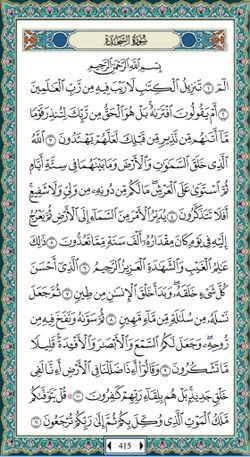 سُورَةُ السَّجْدَةِ
بِسْمِ اللَّهِ الرَّحْمَٰنِ الرَّحِيمِ
الٓمٓ ١ تَنزِيلُ الْكِتَٰبِ لَا رَيْبَ فِيهِ مِن رَّبِّ الْعَٰلَمِينَ
٢ أَمْ يَقُولُونَ افْتَرَىٰهُ ۚ بَلْ هُوَ الْحَقُّ مِن رَّبِّكَ لِتُنذِرَ قَوْمًا
مَّا أَتَىٰهُم مِّن نَّذِيرٍ مِّن قَبْلِكَ لَعَلَّهُمْ يَهْتَدُونَ ٣ اللَّهُ
الَّذِي خَلَقَ السَّمَٰوَٰتِ وَالْأَرْضَ وَمَا بَيْنَهُمَا فِي سِتَّةِ أَيَّامٍ
ثُمَّ اسْتَوَىٰ عَلَى الْعَرْشِ ۖ مَا لَكُم مِّن دُونِهِ مِن وَلِيٍّ وَلَا شَفِيعٍ ۚ
أَفَلَا تَتَذَكَّرُونَ ٤ يُدَبِّرُ الْأَمْرَ مِنَ السَّمَاءِ إِلَى الْأَرْضِ ثُمَّ يَعْرُجُ
إِلَيْهِ فِي يَوْمٍ كَانَ مِقْدَارُهُ أَلْفَ سَنَةٍ مِّمَّا تَعُدُّونَ ٥ ذَٰلِكَ
عَٰلِمُ الْغَيْبِ وَالشَّهَٰدَةِ الْعَزِيزُ الرَّحِيمُ ٦ الَّذِي أَحْسَنَ
كُلَّ شَيْءٍ خَلَقَهُ ۖ وَبَدَأَ خَلْقَ الْإِنسَٰنِ مِن طِينٍ ٧ ثُمَّ جَعَلَ
نَسْلَهُ مِن سُلَٰلَةٍ مِّن مَّاءٍ مَّهِينٍ ٨ ثُمَّ سَوَّىٰهُ وَنَفَخَ فِيهِ مِن
رُّوحِهِ ۖ وَجَعَلَ لَكُمُ السَّمْعَ وَالْأَبْصَٰرَ وَالْأَفْـِٔدَةَ ۚ قَلِيلًا مَّا
تَشْكُرُونَ ٩ وَقَالُوا أَءِذَا ضَلَلْنَا فِي الْأَرْضِ أَءِنَّا لَفِي
خَلْقٍ جَدِيدٍ ۚ بَلْ هُم بِلِقَاءِ رَبِّهِمْ كَٰفِرُونَ ١٠ ۞ قُلْ يَتَوَفَّىٰكُم
مَّلَكُ الْمَوْتِ الَّذِي وُكِّلَ بِكُمْ ثُمَّ إِلَىٰ رَبِّكُمْ تُرْجَعُونَ ١١
415